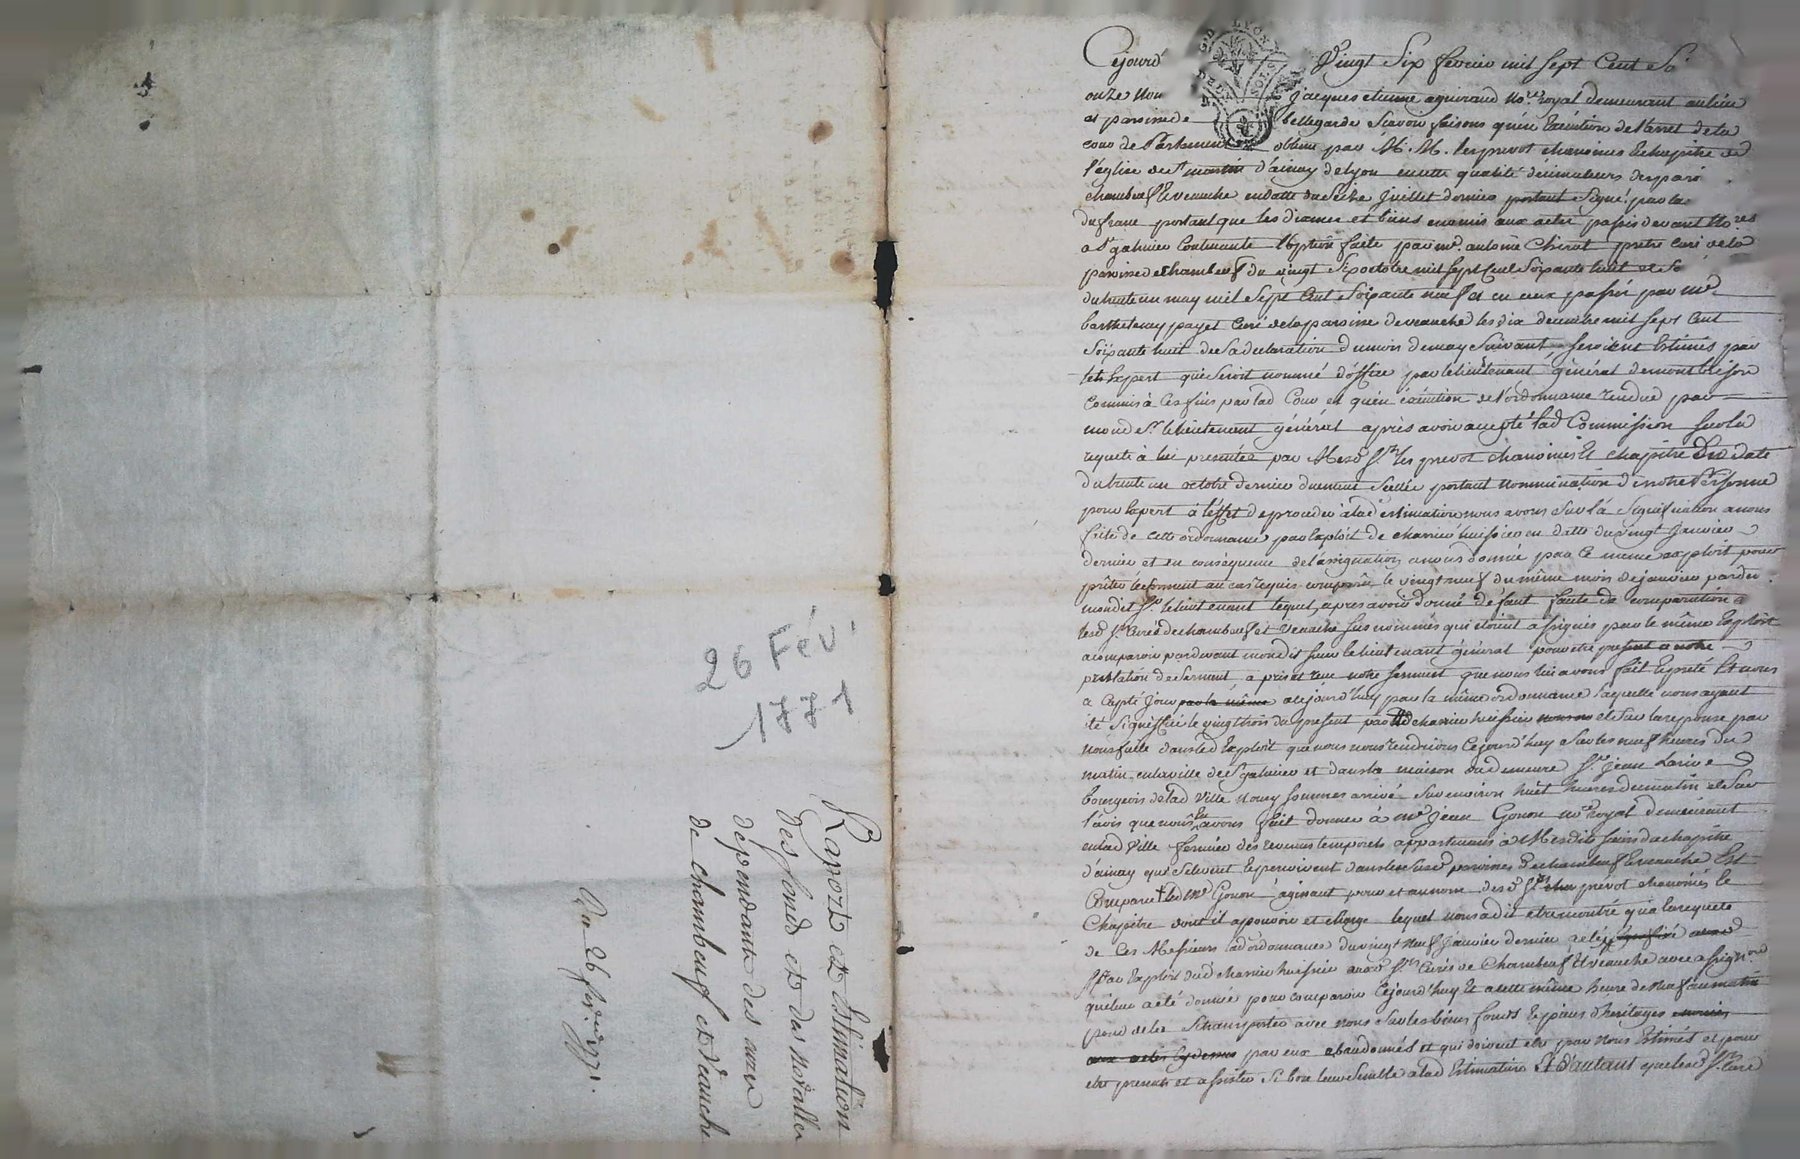 26 Fév.
1771
Raport et Estimation
des fonds et des novalles
dépendants des cures
de chambeuf et veauche
Du 26 fev. 1771.
Cejourd vingt Six fevrier mil Sept Cent So
onze Nou Jacques etienne no.re royal demeurant au lieu
et paroisse de bellegarde Scavoir faisons qu'en Execution de l'arret de la
cour de Parlement obtenu par M. M. les prevot chanoines et chapitre de
l'église de St martin d'ainay de Lyon en cette qualité décimateurs des paro
chambeuf & veauche en datte du Juillet dernier portant Signé par la
dufranc portant que les dixmes et biens enoncés aux actes passés devant No.res
a St galmier Contenants l'option faite par mre antoine Chirat pretre Curé de la
paroisse de chambeuf du vingt Six octobre mil Sept Cent Soixante huit et
du trente un may mil Sept Cent Soixante neuf et en ceux passés par mre
barthelemy payet Curé de la paroisse de veauche les dix decembre mil Sept Cent
Soixante huit de Sa declaration du mois de may Suivant, Seroient Estimés par
Expert qui Seroit nommé d'office par le lieutenant général de montbrison
Commis à Ces fins par lad Cour et qu'en éxécution de l'ordonnance rendue par
mond Sr. le lieutenant général après avoir accepté lad Commission Sur la
requete à lui presentée par Mesd Srs les prevot chanoines & chapitre De date
du trente un octobre dernier duement Scellée portant nomination de notre Personne
pour Expert à l'effet de proceder à lad estimation nous avons Sur la Signification a nous
faite de cette ordonnance par Exploit de charrin huissier en datte du vingt Janvier
dernier et en conséquence de l'assignation a nous donnée par Ce meme exploit pour
prêter le Serment au cas requis comparu le vingt neuf du même mois de janvier pardev
mondit Sr le lieutenant lequel, apres avoir donné defaut faute de comparution a
lesd Srs Curés de chambeuf et veauche Sus nommés qui étoient assignés par le même Exploit
a comparoir pardevant mondit Sieur le lieutenant général pour etre present a notre
prestation de Serment a pris et reçu notre Serment que nous lui avons fait & preté Et nous
a Cepté Jour par la même a cejourd'huy par la même ordonnance laquelle nous ayant
été Signiffiée le vingt trois du present par led charrin huissier et Sur la reponse par
nous faite dans led Exploit que nous nous rendrions Cejourd'huy Sur les neuf heures du
matin en la ville de St galmier et dans la maison ou demeure Sr. Jean Larive
bourgeois de lad Ville Nous y Sommes arrivé Sur environ huit heures du matin et Sur
l'avis que nous avons fait donner à me Jean Gonon nore royal demeurant
en lad Ville fermier des revenus temporels appartenants à Mesdits Sieurs du chapitre
d'ainay qui Se levent & perçoivent dans lesd paroisses de chambeuf & veauche Est
Comparu led me Gonon agissant pour et au nom desd Srs prévot chanoines &
Chapitre dont il a pouvoir et charge lequel nous a dit et remontré qu'a la requete
de Ces Messieurs lad ordonnance du vingt Neuf Janvier dernier
par Exploit dud charrin huissier auxd Srs. Curés de Chambeuf & veauche avec assign.on
qui leur a été donnée pour comparoir Cejourd'huy & a cette même heure de Neuf du matin
pour de la Se transporter avec nous Sur les biens fonds & pieces d'héritages
aux actes par eux abandonnés et qui doivent etre par nous Estimés et pour
etre presents et assister Si bon leur Semble a lad Estimation Et d'autant que lesd Srs Curé